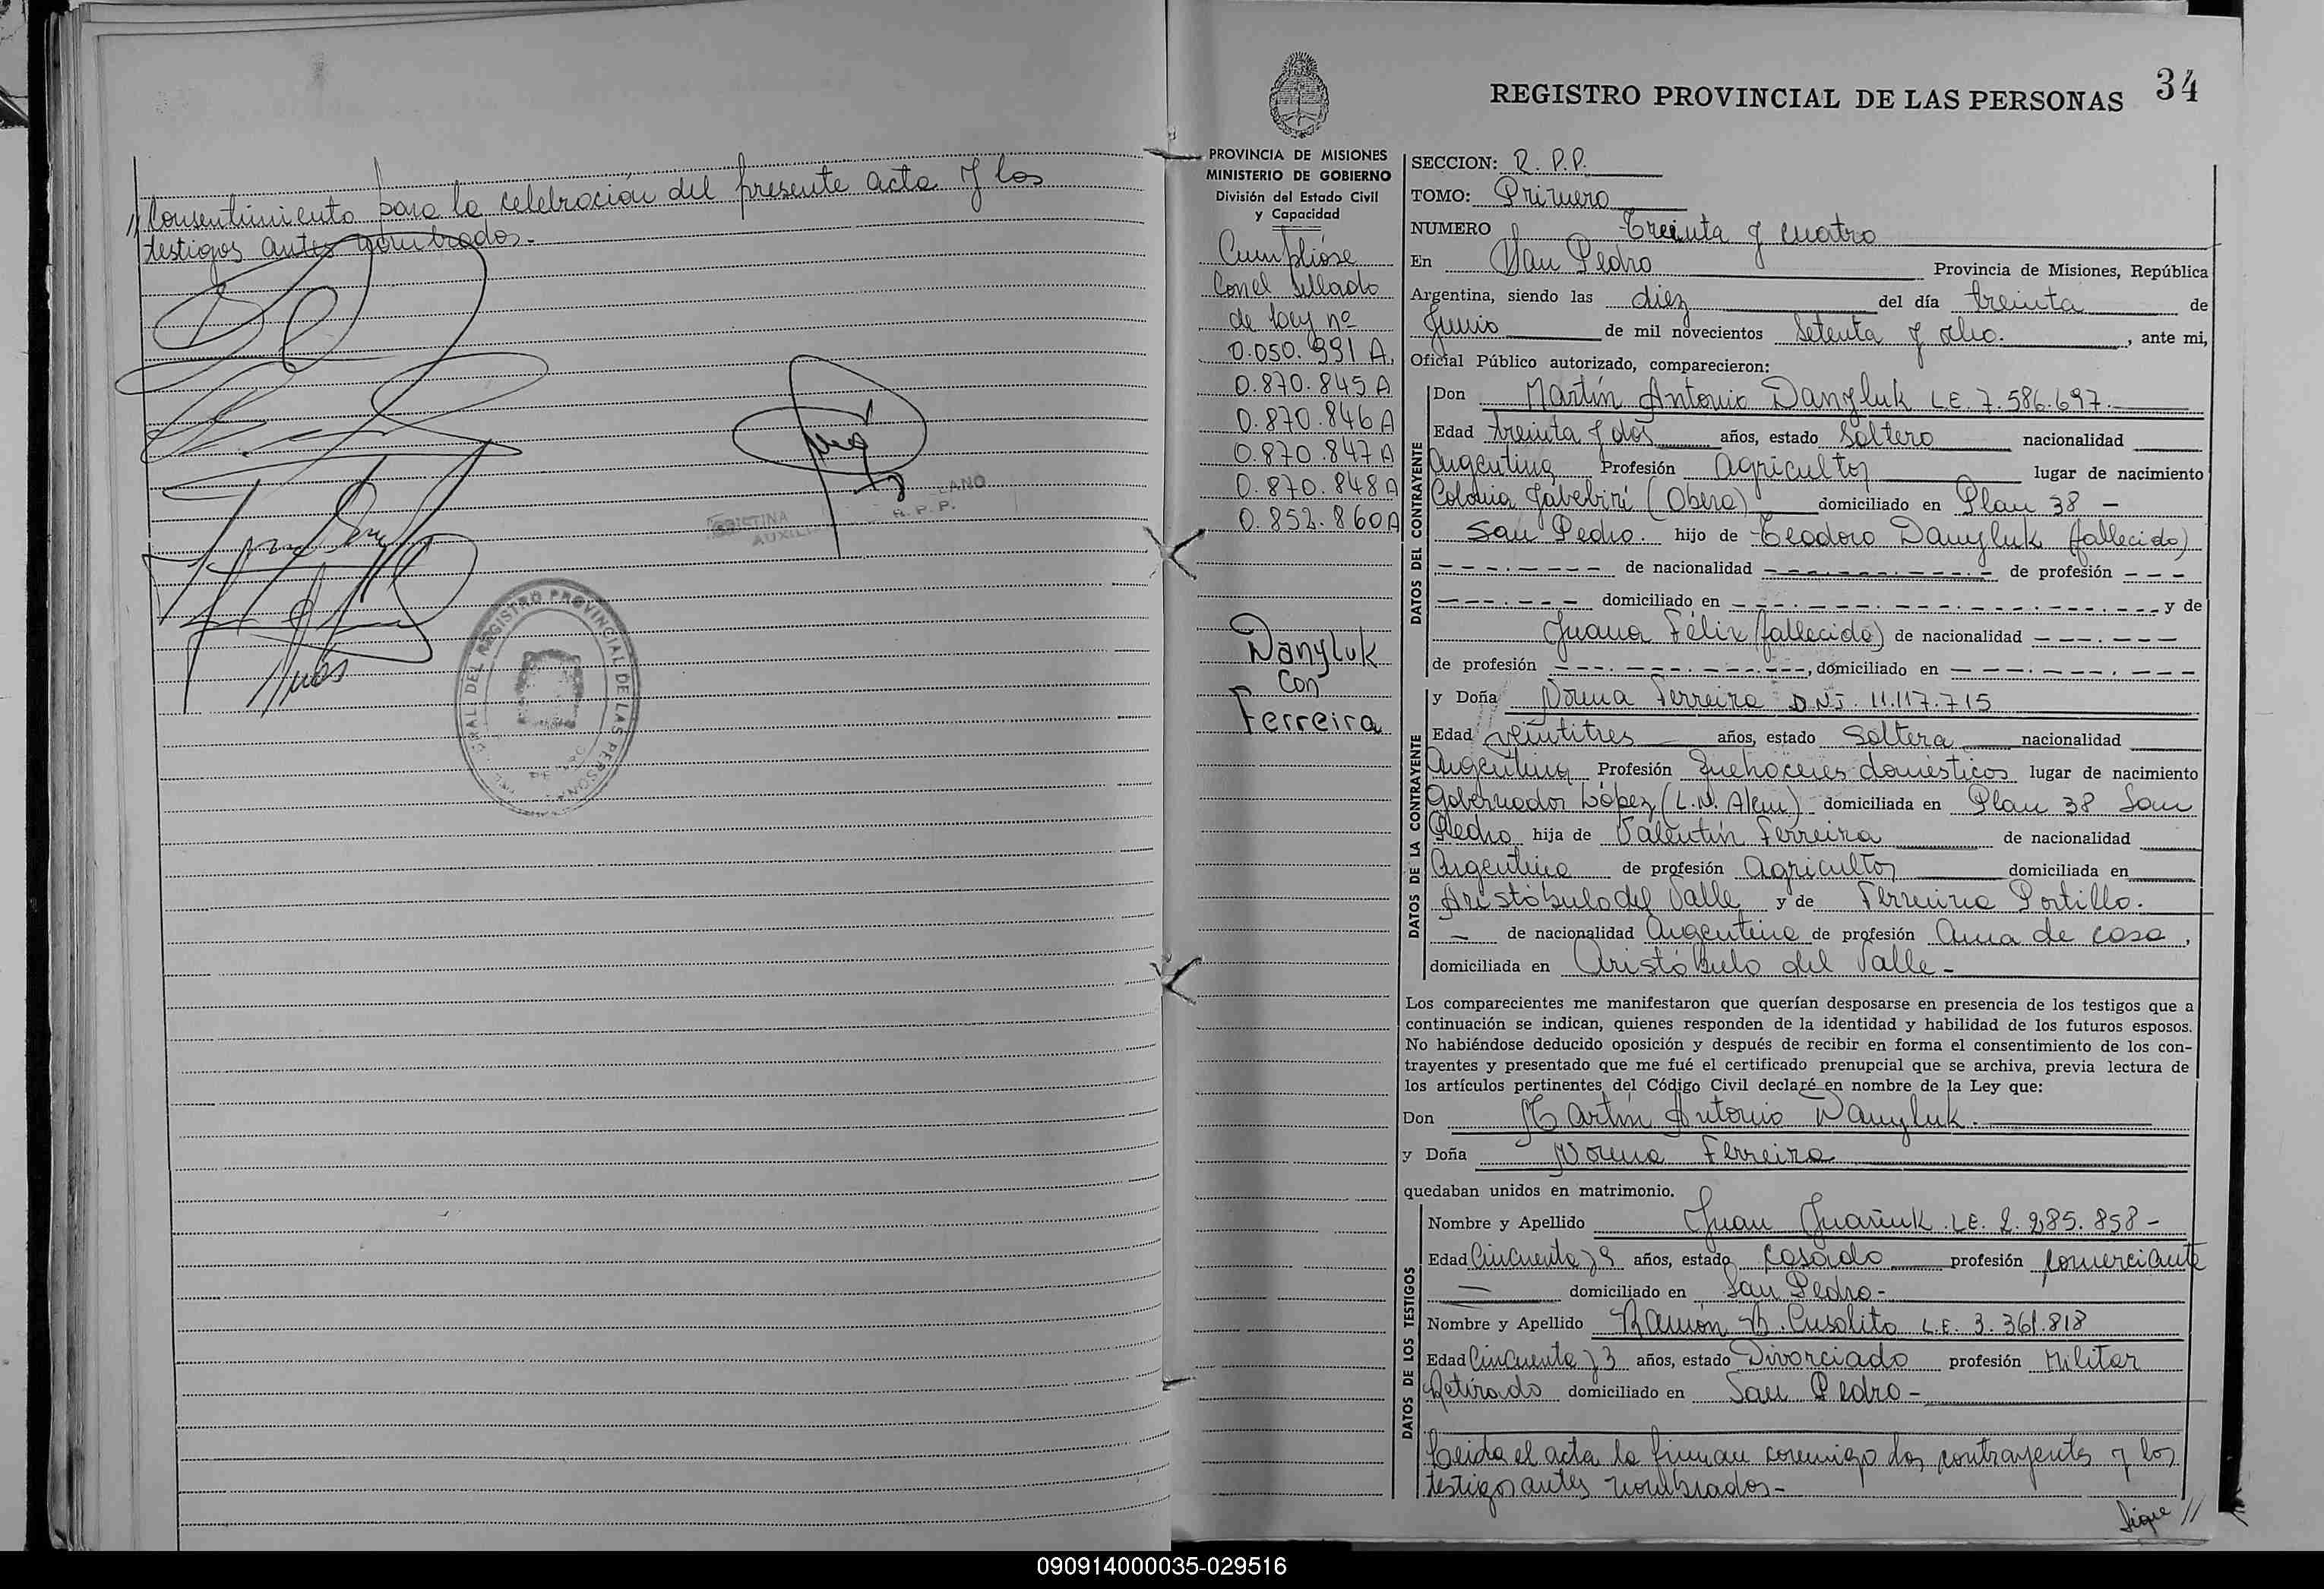 // Consentimiento para la celebración del presente acta y los
testigos antes nombrados.-
CRISTINA LANO
AUXIL R. P. P.
REGISTRO PROVINCIAL DE LAS PERSONAS
34
REGISTRO PROVINCIAL DE LAS PERSONAS
PROVINCIA DE MISIONES
MINISTERIO DE GOBIERNO
División del Estado Civil
y Capacidad
Cumplióse
Con el Sellado
de Ley nº
0.050.991 A.
0.870.845 A
0.870.846 A
0.870.847 A
0.870.848 A
0.852.860 A
Danyluk
Con
Ferreira
SECCION: R. P.P.
TOMO: Primero
NUMERO Treinta y cuatro
En San Pedro Provincia de Misiones, República
Argentina, siendo las diez del día treinta de
Junio de mil novecientos Setenta y ocho. , ante mi,
Oficial Público autorizado, comparecieron:
DATOS DEL CONTRAYENTE
Don Martín Antonio Danyluk LE. 7.586.697.
Edad treinta y dos años, estado Soltero nacionalidad
Argentina Profesión Agricultor lugar de nacimiento
Colonia Yabebirí (Obera) domiciliado en Plan 38 -
San Pedro. hijo de Teodoro Danyluk (fallecido)
de nacionalidad de profesión
domiciliado en y de
Juana Félix (fallecida) de nacionalidad
de profesión , domiciliado en
DATOS DE LA CONTRAYENTE
y Doña Norma Ferreira D.N.I. 11.117.715
Edad veintitres años, estado Soltera nacionalidad
Argentina Profesión Quehaceres domésticos lugar de nacimiento
Gobernador López (L.N. Alem) domiciliada en Plan 38 San
Pedro hija de Valentín Ferreira de nacionalidad
Argentina de profesión Agricultor domiciliada en
Aristóbulo del Valle y de Ferreira Portillo.
- de nacionalidad Argentina de profesión Ama de casa,
domiciliada en Aristóbulo del Valle-
Los comparecientes me manifestaron que querían desposarse en presencia de los testigos que a
continuación se indican, quienes responden de la identidad y habilidad de los futuros esposos.
No habiéndose deducido oposición y después de recibir en forma el consentimiento de los con-
trayentes y presentado que me fué el certificado prenupcial que se archiva, previa lectura de
los artículos pertinentes del Código Civil declaré en nombre de la Ley que:
Don Martín Antonio Danyluk.
y Doña Norma Ferreira
quedaban unidos en matrimonio.
DATOS DE LOS TESTIGOS
Nombre y Apellido Juan LE. 2.285.858-
Edad Cincuenta y 9 años, estado Casado profesión Comerciante
domiciliado en San Pedro-
Nombre y Apellido Ramón B. Cusolito L.E. 3.361.818
Edad Cincuenta y 3 años, estado Divorciado profesión Militar
Retirado domiciliado en San Pedro-
Leida el acta la firman conmigo los contrayentes y los
testigos antes nombrados-
Sigue //
090914000035-029516